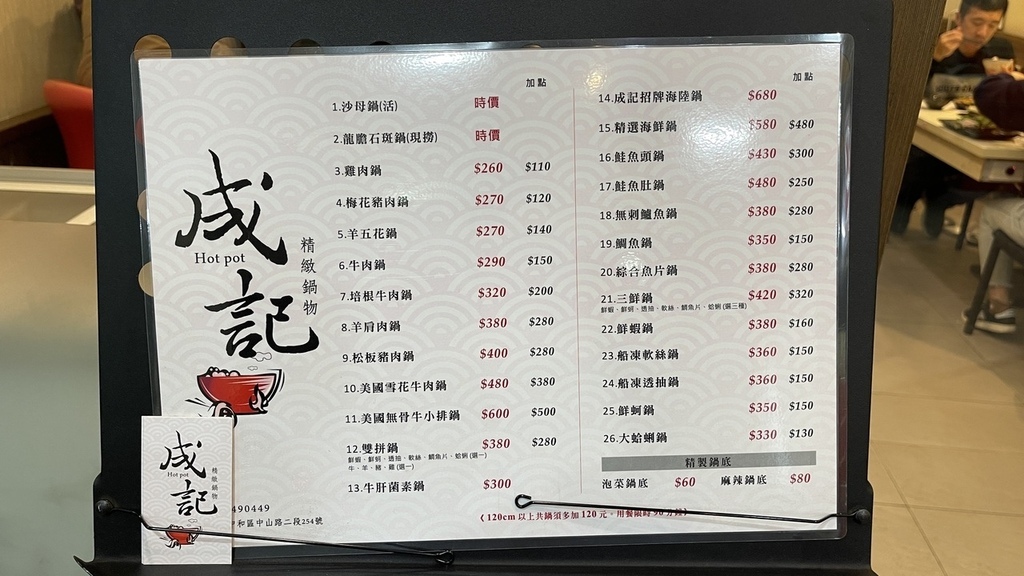 成記
Hot pot
精緻鍋物
加點
1.沙母鍋(活) 時價
2.龍膽石斑鍋(現撈) 時價
3.雞肉鍋 $260 $110
4.梅花豬肉鍋 $270 $120
5.羊五花鍋 $270 $140
6.牛肉鍋 $290 $150
7.培根牛肉鍋 $320 $200
8.羊肩肉鍋 $380 $280
9.松板豬肉鍋 $400 $280
10.美國雪花牛肉鍋 $480 $380
11.美國無骨牛小排鍋 $600 $500
12.雙拼鍋 $380 $280
鮮蝦、鮮蚵、透抽、軟絲、鯛魚片、蛤蜊(選一)
牛、羊、豬、雞(選一)
13.牛肝菌素鍋 $300
加點
14.成記招牌海陸鍋 $680
15.精選海鮮鍋 $580 $480
16.鮭魚頭鍋 $430 $300
17.鮭魚肚鍋 $480 $250
18.無刺鱸魚鍋 $380 $280
19.鯛魚鍋 $350 $150
20.綜合魚片鍋 $380 $280
21.三鮮鍋 $420 $320
鮮蝦、鮮蚵、透抽、軟絲、鯛魚片、蛤蜊(選三種)
22.鮮蝦鍋 $380 $160
23.船凍軟絲鍋 $360 $150
24.船凍透抽鍋 $360 $150
25.鮮蚵鍋 $350 $150
26.大蛤蜊鍋 $330 $130
精製鍋底
泡菜鍋底 $60 麻辣鍋底 $80
(120cm 以上共鍋須多加 120 元。用餐限時 90 分鐘)
490449
和區中山路二段254號
成記
Hot pot
精緻鍋物